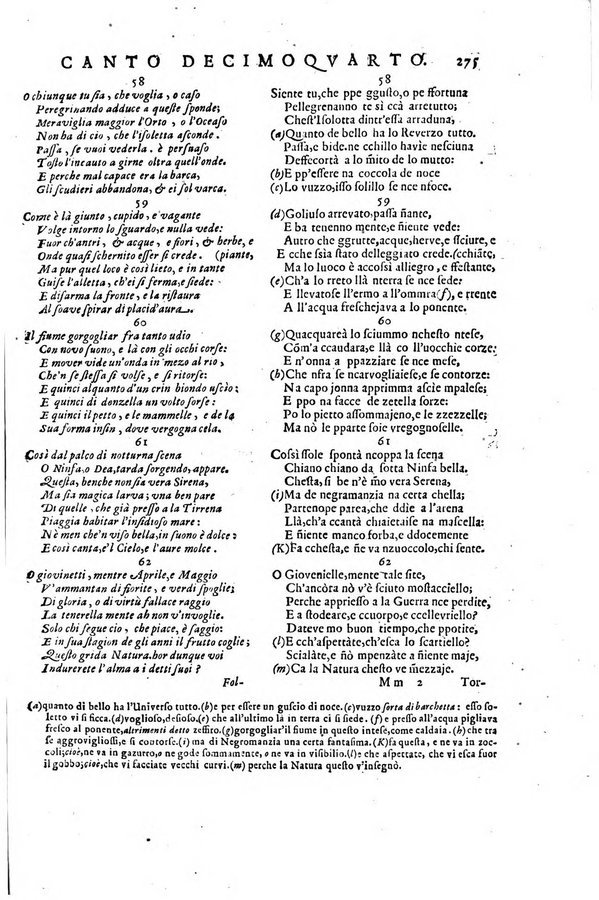 CANTO DECIMOQVARTO. 275
58
O chiunque tu sia, che voglia, o caso
Peregrinando adduce a queste sponde;
Meraviglia maggior l'Orto, o l'Oceaso
Non ha di cio, che l'isoletta asconde.
Passa, se vuoi vederla. è persuaso
Tosto l'incauto a girne oltra quell'onde.
E perche mal capace era la barca,
Gli scudieri abbandona, & ei sol varca.
59
Come è là giunto, cupido, e vagante
Volge intorno lo sguardo, e nulla vede:
Fuor ch'antri, & acque, e fiori, & herbe, e (piante,
Onde quasi schernito esser si crede.
Ma pur quel loco è così lieto, e in tante
Guise l'alletta, ch'ei si ferma, e siede:
E disarma la fronte, e la ristaura
Al soave spirar di placid'aura.
60
Il fiume gorgogliar fra tanto udio
Con novo suono, e là con gli occhi corse:
E mover vide un'onda in mezo al rio,
Che'n se stessa si volse, e si ritorse:
E quinci alquanto d'un crin biondo uscìo;
E quinci di donzella un volto sorse:
E quinci il petto, e le mammelle, e de la
Sua forma insin, dove vergogna cela.
61
Così dal palco di notturna scena
O Ninfa, o Dea, tarda sorgendo, appare.
Questa, benche non sia vera Sirena,
Ma sia magica larva; una ben pare
Di quelle, che già presso a la Tirrena
Piaggia habitar l'insidioso mare:
Nè men che'n viso bella, in suono è dolce:
E così canta, e'l Cielo, e l'aure molce.
62
O giovinetti, mentre Aprile, e Maggio
V'ammantan di fiorite, e verdi spoglie;
Di gloria, o di virtù fallace raggio
La tenerella mente ah non v'invoglie.
Solo chi segue cio, che piace, è saggio:
E in sua stagion de gli anni il frutto coglie;
Questo grida Natura. hor dunque voi
Indurerete l'alma a i detti suoi?
Fol-
58
Siente tu, che ppe ggusto, o pe ssortuna
Pellegrenanno te si ccà arretutto;
Chest'Isolotta dintr'essa arraduna,
(a) Quanto de bello ha lo Reverzo tutto.
Passa, e bide. ne cchillo havie nesciuna
Deffecortà a lo m̄ito de lo mutto:
(b) E pp'essere na coccola de noce
(c) Lo vuzzo, isso solillo se nce nfoce.
59
(d) Goliuso arrevato, passa ñante,
E ba tenenno mente, e niente vede:
Autro che ggrutte, acque, herve, e sciure, e
E cche sia stato delleggiato crede. (cchiãte;
Ma lo luoco è accossì allegro, e essettante,
(e) Ch'a lo rreto llà nterra se nce sede:
E llevatose ll'ermo a ll'ommra (f), e ttente
A ll'acqua freschejava a lo ponente.
60
(g) Quacquareà lo sciummo nchesto ntese,
Cõm'a ccaudara, e llà co ll'uocchie corze:
E n'onna a ppazziare se nce mese;
(h) Che nfra se ncarvogliaiese, e se contorze:
Na capo jonna apprimma ascie mpalese;
E ppo na facce de zetella sorze:
Po lo pietto assommajeno, e le zzezzelle;
Ma nò le pparte soie vregognoselle.
61
Cossì ssole spontà ncoppa la scena
Chiano chiano da sotta Ninfa bella.
Chesta, si be n'è m̄o vera Serena,
(i) Ma de negramanzia na certa chella;
Partenope parea, che ddie a l'arena
Llà, ch'a ccantà chiaieiase na mascella:
E ñiente manco forba, e ddocemente
(K) Fa cchesta, e ñe va nzuoccolo, chi sente.
62
O Giovenielle, mentre tale site,
Ch'ancòra nò v'è sciuto mostacciello;
Perche appriesso a la Guerra nce perdite,
E a stodeare, e ccuorpo, e ccellevriello?
Dateve mo buon tiempo, che ppotite,
(l) E ch'aspettate? lo scartiello?
Scialàte, e nõ mpazzì a niente maje,
(m) Ca la Natura chesto ve mezzaje.
M m 2 Tor-
(a) quanto di bello ha l'Universo tutto. (b) e per essere un guscio di noce. (c) vuzzo sorta di barchetta: esso so-
letto vi si ficca. (d) voglioso, desioso. (e) che all'ultimo là in terra ci si siede. (f) e presso all'acqua pigliava
fresco al ponente, altrimenti detto zeffiro. (g) gorgogliar'il fiume in questo intese, come caldaia. (h) che tra
se aggrovigliossi, e si contorse. (i) ma di Negromanzia una certa fantasima. (K) fa costei, e ne va in zoc-
coli; cioè, ne va in gazurro, o ne gode sommamente, o ne va in visibilio. (l) che aspettate, che vi esca fuor
il gobbo; cioè, che vi facciate vecchi curvi. (m) perche la Natura questo v'insegnò.